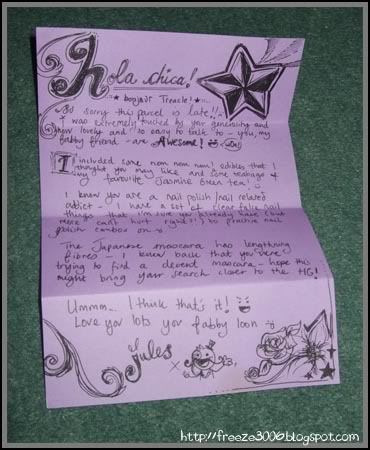 Hola chica!
★ bonjour Treacle! ★
So sorry this parcel is late!!
I was extremely touched by your generosity and
how lovely and so easy to talk to – you, my
fabby friend – are Awesome!
I included some nom nom nom! edibles that I
thought you may like and some teabags of
my favourite Jasmine Green tea!
I know you are a nail polish/nail related
addict – I have a set of clear false nail
things that I'm sure you already have (but
more can't hurt right?!) to practise nail
polish combos on
The Japanese mascara has lengthning
fibres – I knew back that you were
trying to find a decent mascara – hope this
might bring your search closer to the HG!
Ummm... I think that's it!
Love you lots you fabby loon
Jules x
http://freeze3006.blogspot.com